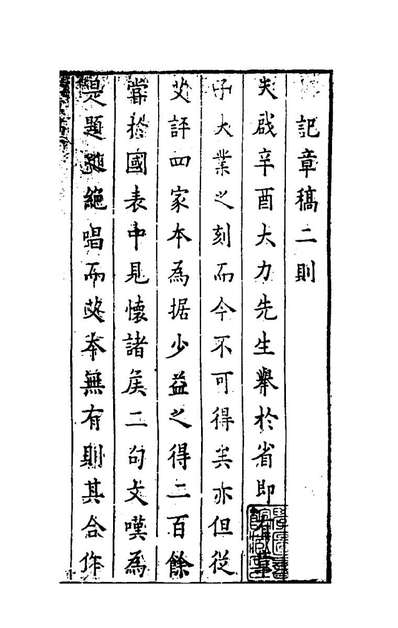 記章稿二則
天啟辛酉大力先生舉於省即
大業之刻而今不可得矣亦但從
艾評四家本為据少益之得二百餘
嘗於國表中見懷諸侯二句文嘆為
是題絕唱而艾本無有則其合作